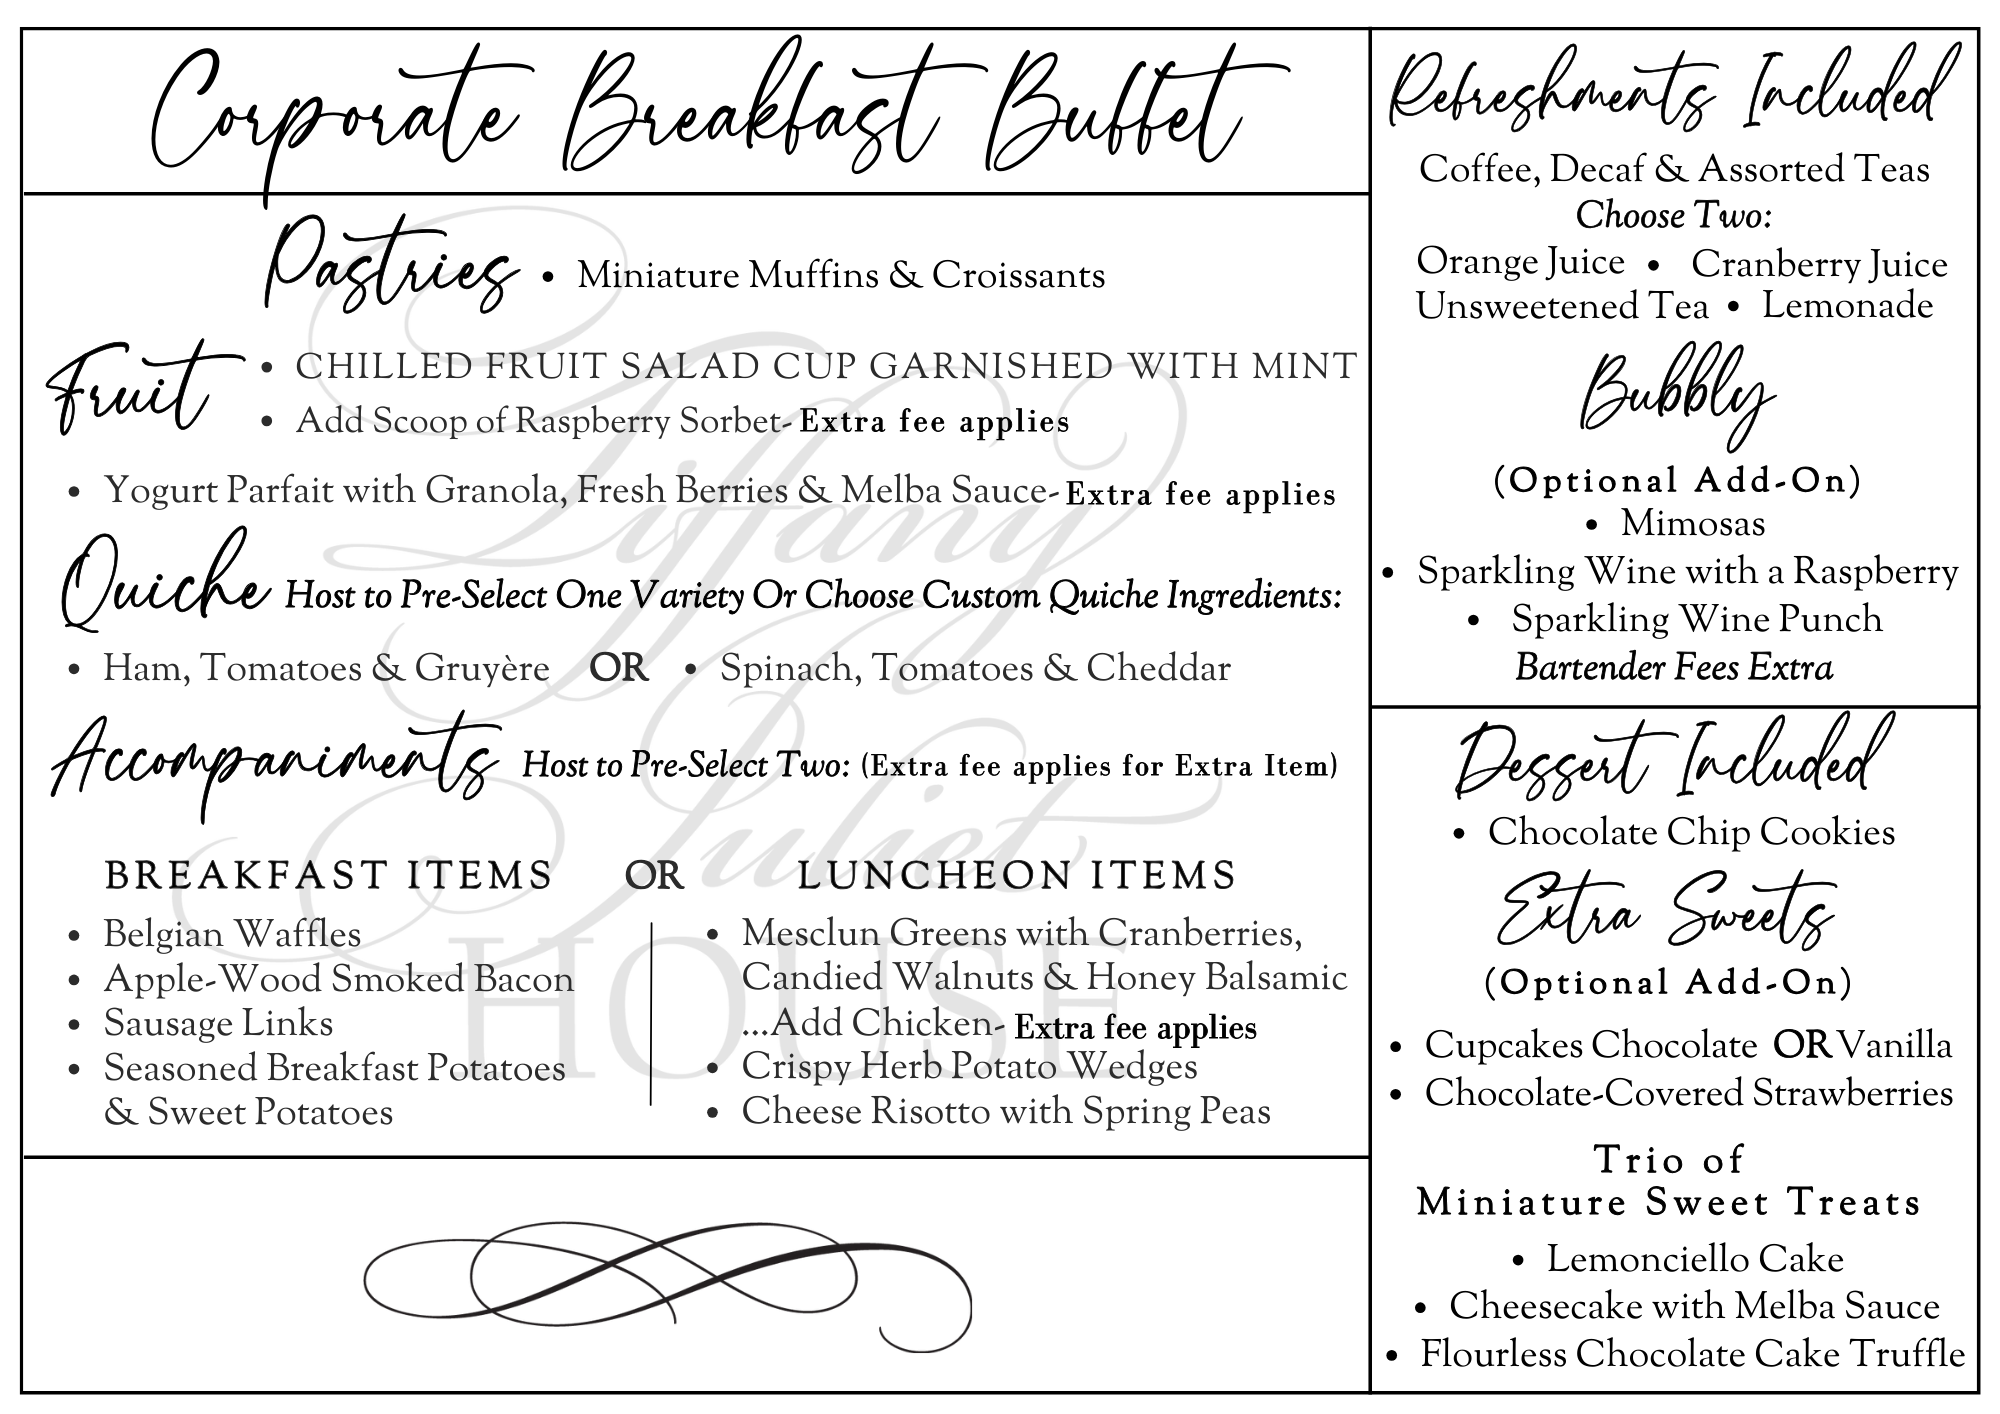 Corporate Breakfast Buffet
Pastries • Miniature Muffins & Croissants
Fruit
• CHILLED FRUIT SALAD CUP GARNISHED WITH MINT
• Add Scoop of Raspberry Sorbet- Extra fee applies
• Yogurt Parfait with Granola, Fresh Berries & Melba Sauce- Extra fee applies
Quiche Host to Pre-Select One Variety Or Choose Custom Quiche Ingredients:
• Ham, Tomatoes & Gruyère OR • Spinach, Tomatoes & Cheddar
Accompaniments Host to Pre-Select Two: (Extra fee applies for Extra Item)
BREAKFAST ITEMS OR LUNCHEON ITEMS
• Belgian Waffles
• Apple-Wood Smoked Bacon
• Sausage Links
• Seasoned Breakfast Potatoes
& Sweet Potatoes
• Mesclun Greens with Cranberries,
Candied Walnuts & Honey Balsamic
...Add Chicken- Extra fee applies
• Crispy Herb Potato Wedges
• Cheese Risotto with Spring Peas
Tiffany
Juliet
HOUSE
Refreshments Included
Coffee, Decaf & Assorted Teas
Choose Two:
Orange Juice • Cranberry Juice
Unsweetened Tea • Lemonade
Bubbly
(Optional Add-On)
• Mimosas
• Sparkling Wine with a Raspberry
• Sparkling Wine Punch
Bartender Fees Extra
Dessert Included
• Chocolate Chip Cookies
Extra Sweets
(Optional Add-On)
• Cupcakes Chocolate OR Vanilla
• Chocolate-Covered Strawberries
Trio of
Miniature Sweet Treats
• Lemonciello Cake
• Cheesecake with Melba Sauce
• Flourless Chocolate Cake Truffle